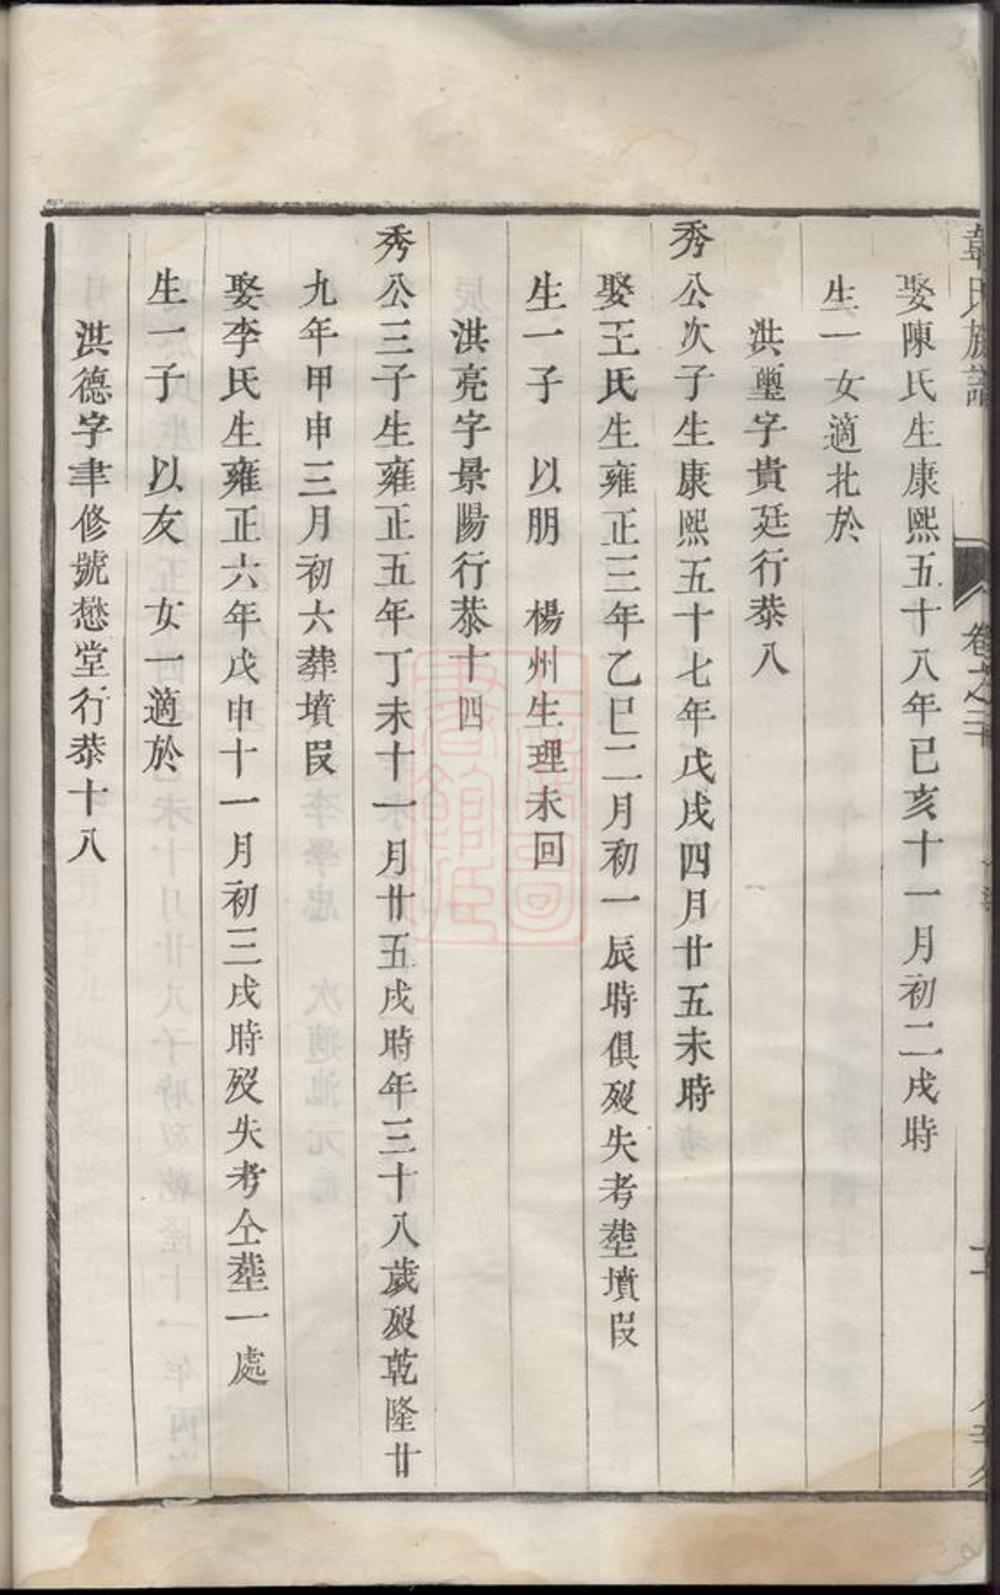 韋氏族譜
卷之
娶陳氏生康熙五十八年己亥十一月初二戌時
生一女適北於
洪璽字貴廷行恭八
秀公次子生康熙五十七年戊戌四月廿五未時
娶王氏生雍正三年乙巳二月初一辰時俱歿失考塟墳段
生一子 以朋 楊州生理未回
洪亮字景陽行恭十四
秀公三子生雍正五年丁未十一月廿五戌時年三十八歲歿乾隆廿
九年甲申三月初六葬墳段
娶李氏生雍正六年戊申十一月初三戌時歿失考仝塟一處
生一子 以友 女一適於
洪德字聿修號懋堂行恭十八